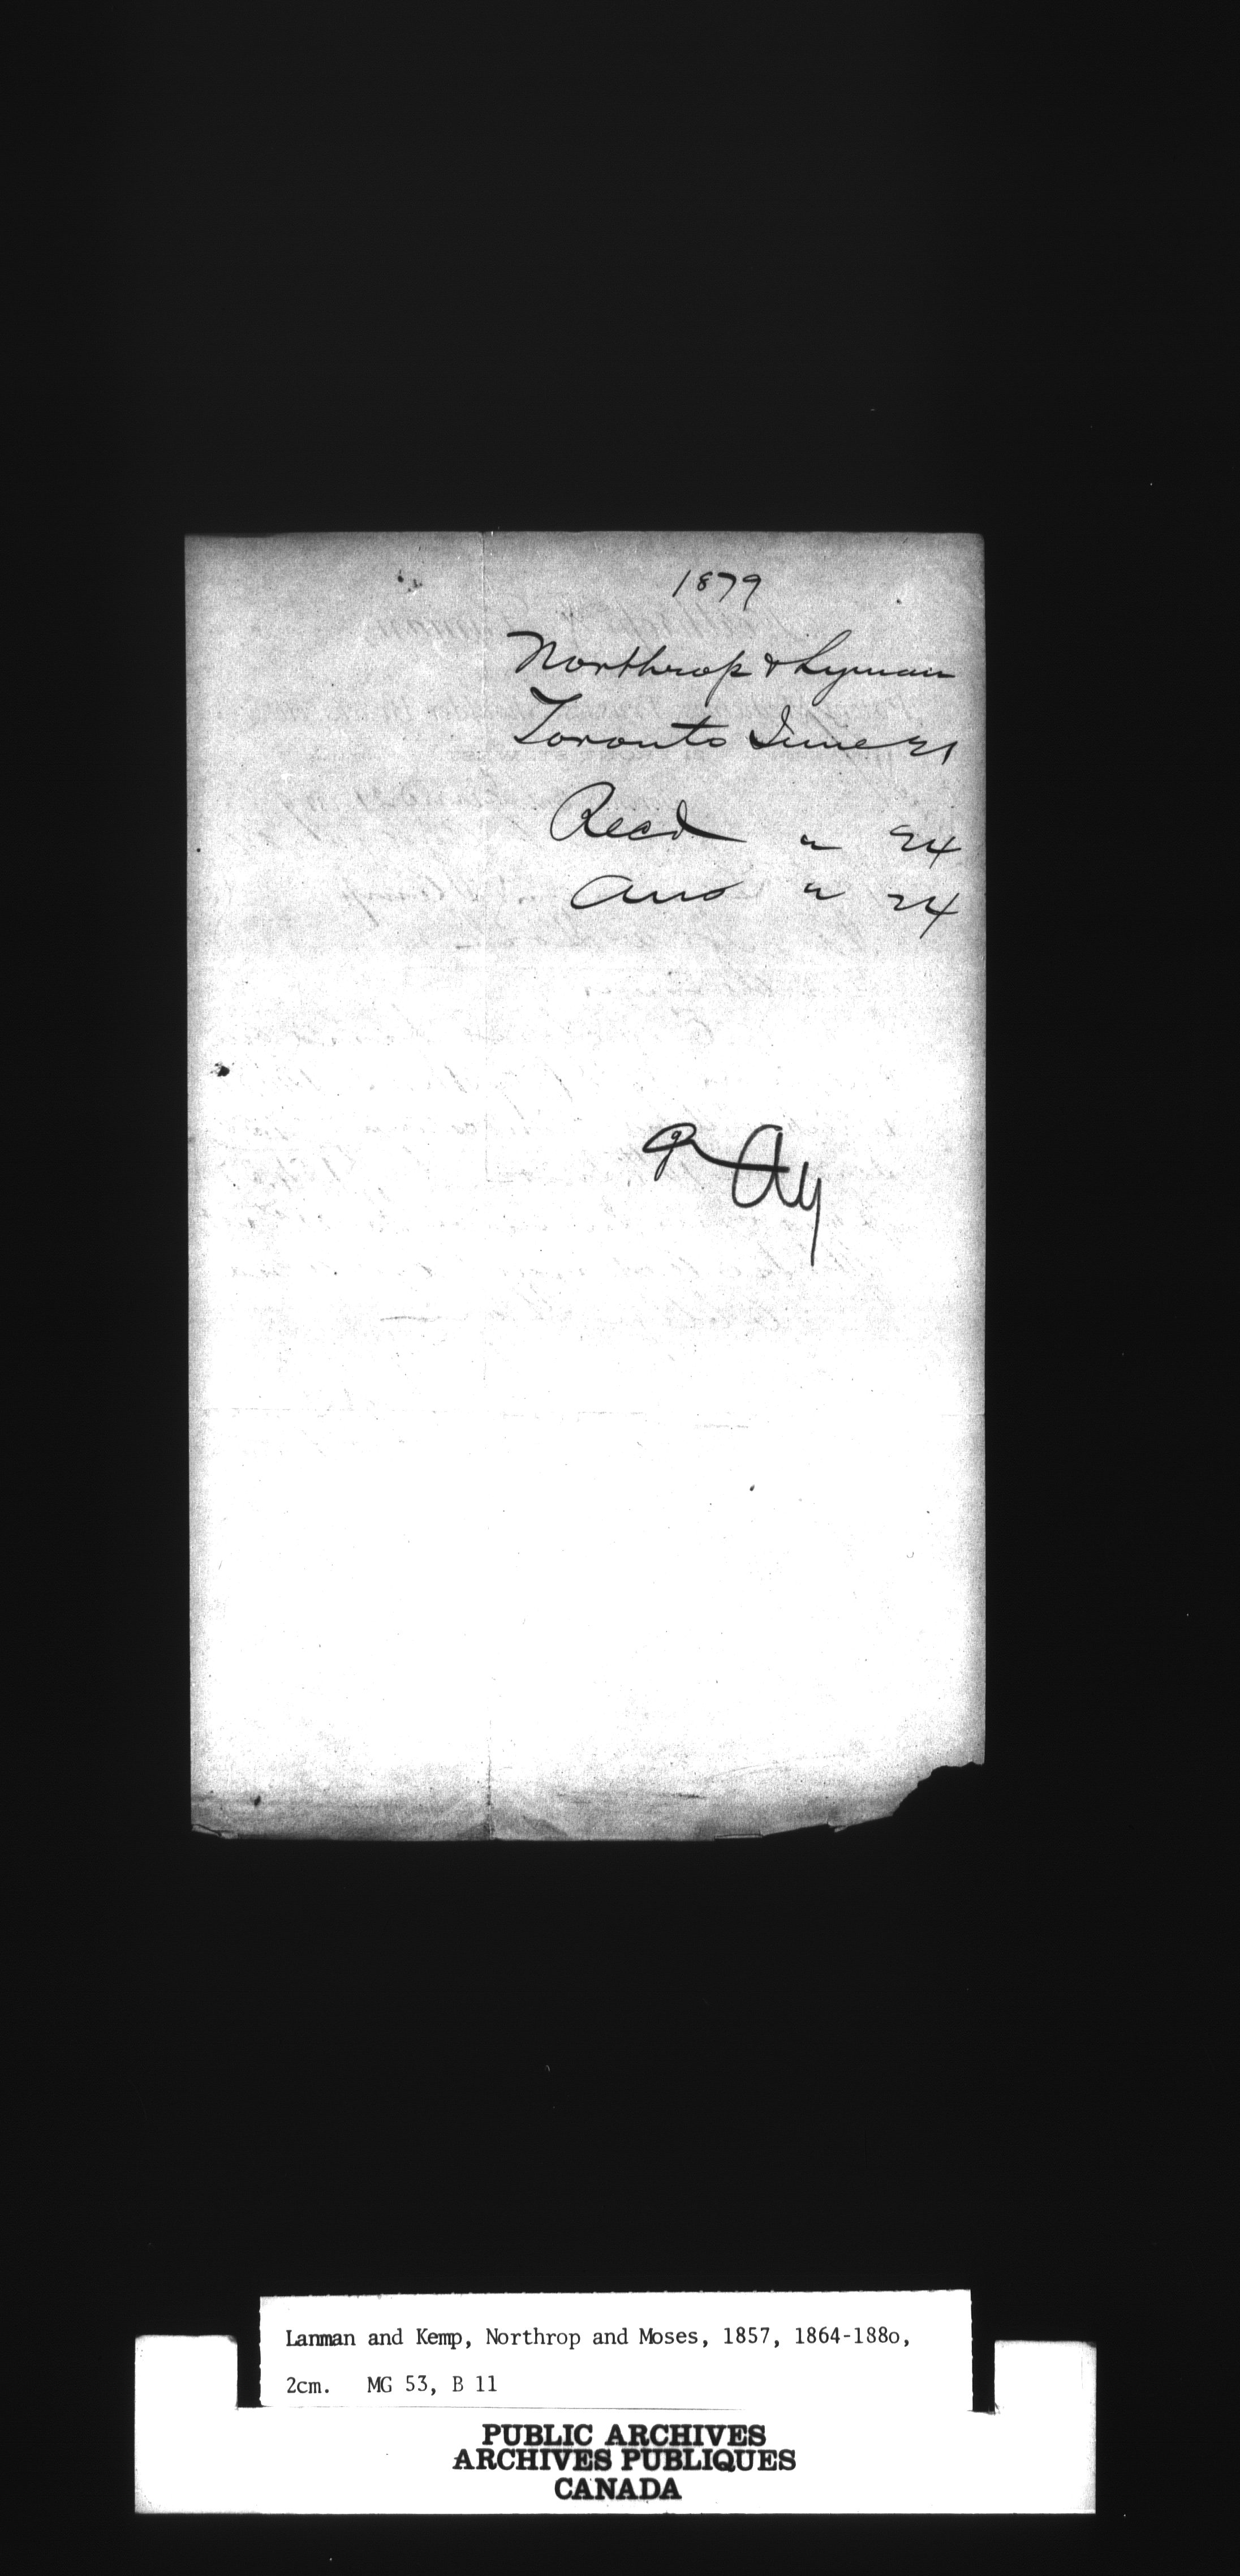 1879
Northrop & Lyman
Toronto June 21
Recd " 24
Ans " 24
Lanman and Kemp, Northrop and Moses, 1857, 1864-188o,
2cm. MG 53, B 11
PUBLIC ARCHIVES
ARCHIVES PUBLIQUES
CANADA